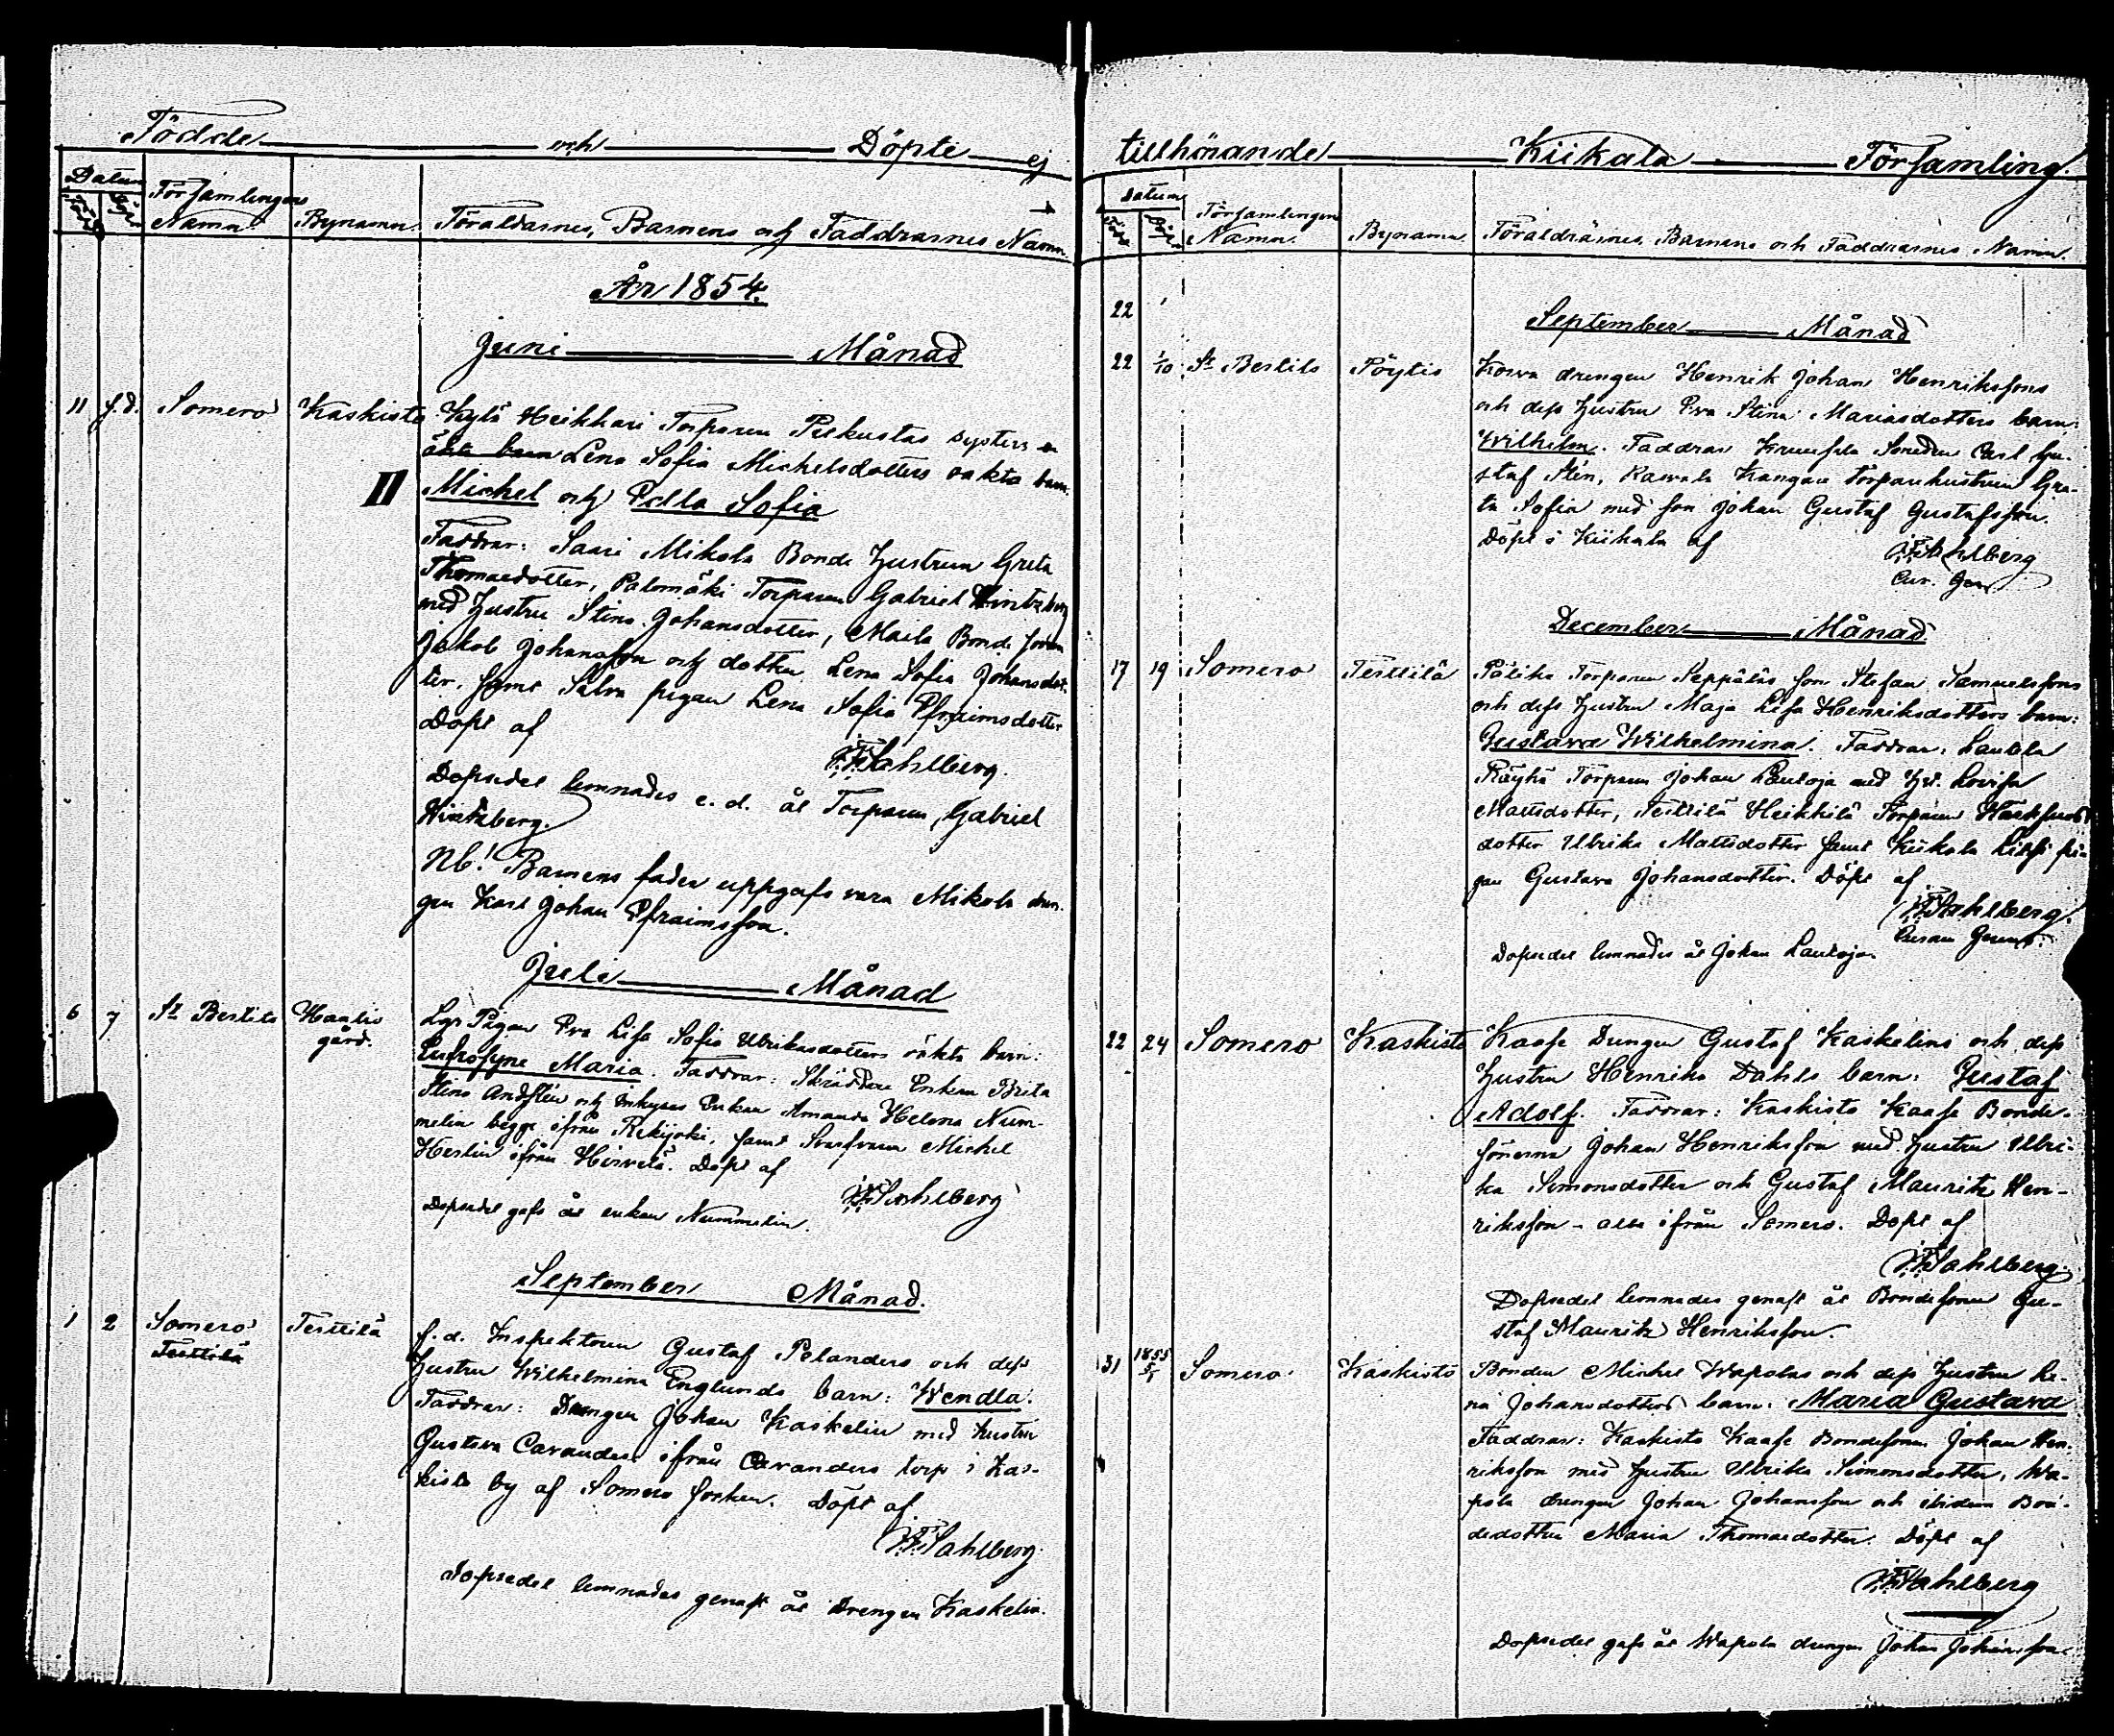 Födde och Döpte ej
Datum
Född Döpt
Församlingens
Namn. Bynamn. Föräldrarnes, Barnens och Faddrarnes Namn.
År 1854.
Juni Månad
11 s.d. Somero Kaskisto Kylä Heikkari Torparen Pelkustas systers o
äkta barn Lena Sofia Michelsdotters oäkta barn:
II Michel och Edla Sofia
Faddrar: Saari Mikola Bonde Hustrun Greta
Thomasdotter, Palomäki Torparen Gabriel Wintzberg
med Hustru Stina Johansdotter, Maila Bonde sonen
Jakob Johansson och dottren Lena Sofia Johansdot-
ter, samt Salva pigan Lena Sofia Efraimsdotter
Döpt af
F. Sahlberg.
Dopsedel lemnades e. d. åt Torparen Gabriel
Wintzberg.
Nb! Barnens fader uppgafs vara Mikola dren-
gen Karl Johan Efraimsson.
Juli Månad
6 7 St Bertils Haali
gård. Lgs Pigan Eva Lisa Sofia Ulriksdotters oäkta barn:
Eufrosyne Maria. Faddrar: Skräddare Enkan Brita
Stina och Enkan Amanda Helena Num-
melin begge ifrån Rekijoki, samt Svarfvaren Michel
Herlin ifrån Hirvelä. Döpt af
F. Sahlberg
Dopsedel gafs åt enkan Nummelin.
September Månad.
1 2 Somero Terttilä f.d. Inspektoren Gustaf Pelanders och dess
Terttilä
Hustru Wilhelmina Englunds barn: Wendla.
Faddrar: Drengen Johan Kaskelin med hustru
Gustava Carander ifrån Caranders torp i Kas-
kisto by af Somero socken. Döpt af
F. Sahlberg.
Dopsedel lemnades genast åt Drengen Kaskelin.
tillhörande Kiikala Församling.
Datum
Född Döpt
Församlingens
Namn. Bynamn. Föräldrarnes, Barnens och Faddrarnes Namn.
22
September Månad
22 1/10 St Bertils Pöytiö Korva drengen Henrik Johan Henrikssons
och dess Hustru Eva Stina Mariasdotters barn:
Wilhelm. Faddrar Smeden Carl Gu-
staf Sten, Kangas Torparhustrun Gre-
ta Sofia med son Johan Gustaf Gustafsson.
Döpt i Kiikala af
F. Sahlberg
Cur. Gen.
December Månad
17 19 Somero Terttilä Pälikö Torparen Seppäläs son Stefan Samuelssons
och dess Hustru Maja Lisa Henriksdotters barn:
Gustava Wilhelmina. Faddrar: Lautela
Räyhä Torparen Johan Lauloja med Hr. Lovisa
Mattsdotter, Terttilä Heikkilä Torparen
dotter Ulrika Mattsdotter samt Kiikala pi-
gan Gustava Johansdotter. Döpt af
F. Sahlberg.
Dopsedel lemnades åt Johan Lauloja.
22 24 Somero Kaskisto Kaase Drengen Gustaf Kaskelins och dess
Hustru Henrika Dahls barn: Gustaf
Adolf. Faddrar: Kaskisto Kaase Bonde-
sönerna Johan Henriksson med Hustru Ulri-
ka Simonsdotter och Gustaf Mauritz Hen-
riksson - alla ifrån Somero. Döpt af
F. Sahlberg.
Dopsedel lemnades genast åt Bondesonen Gu-
staf Mauritz Henriksson.
31 1855 5/1 Somero Kaskisto Bonden Michel Wapolas och dess Hustru Le-
na Johansdotters barn: Maria Gustava
Faddrar: Kaskisto Kaase Bondesonen Johan Hen-
riksson med Hustru Ulrika Simonsdotter, Wa-
pola drengen Johan Johansson och ibidem Bon-
dedottren Maria Thomasdotter. Döpt af
F. Sahlberg
Dopsedel gafs åt Wapola drengen Johan Johansson.